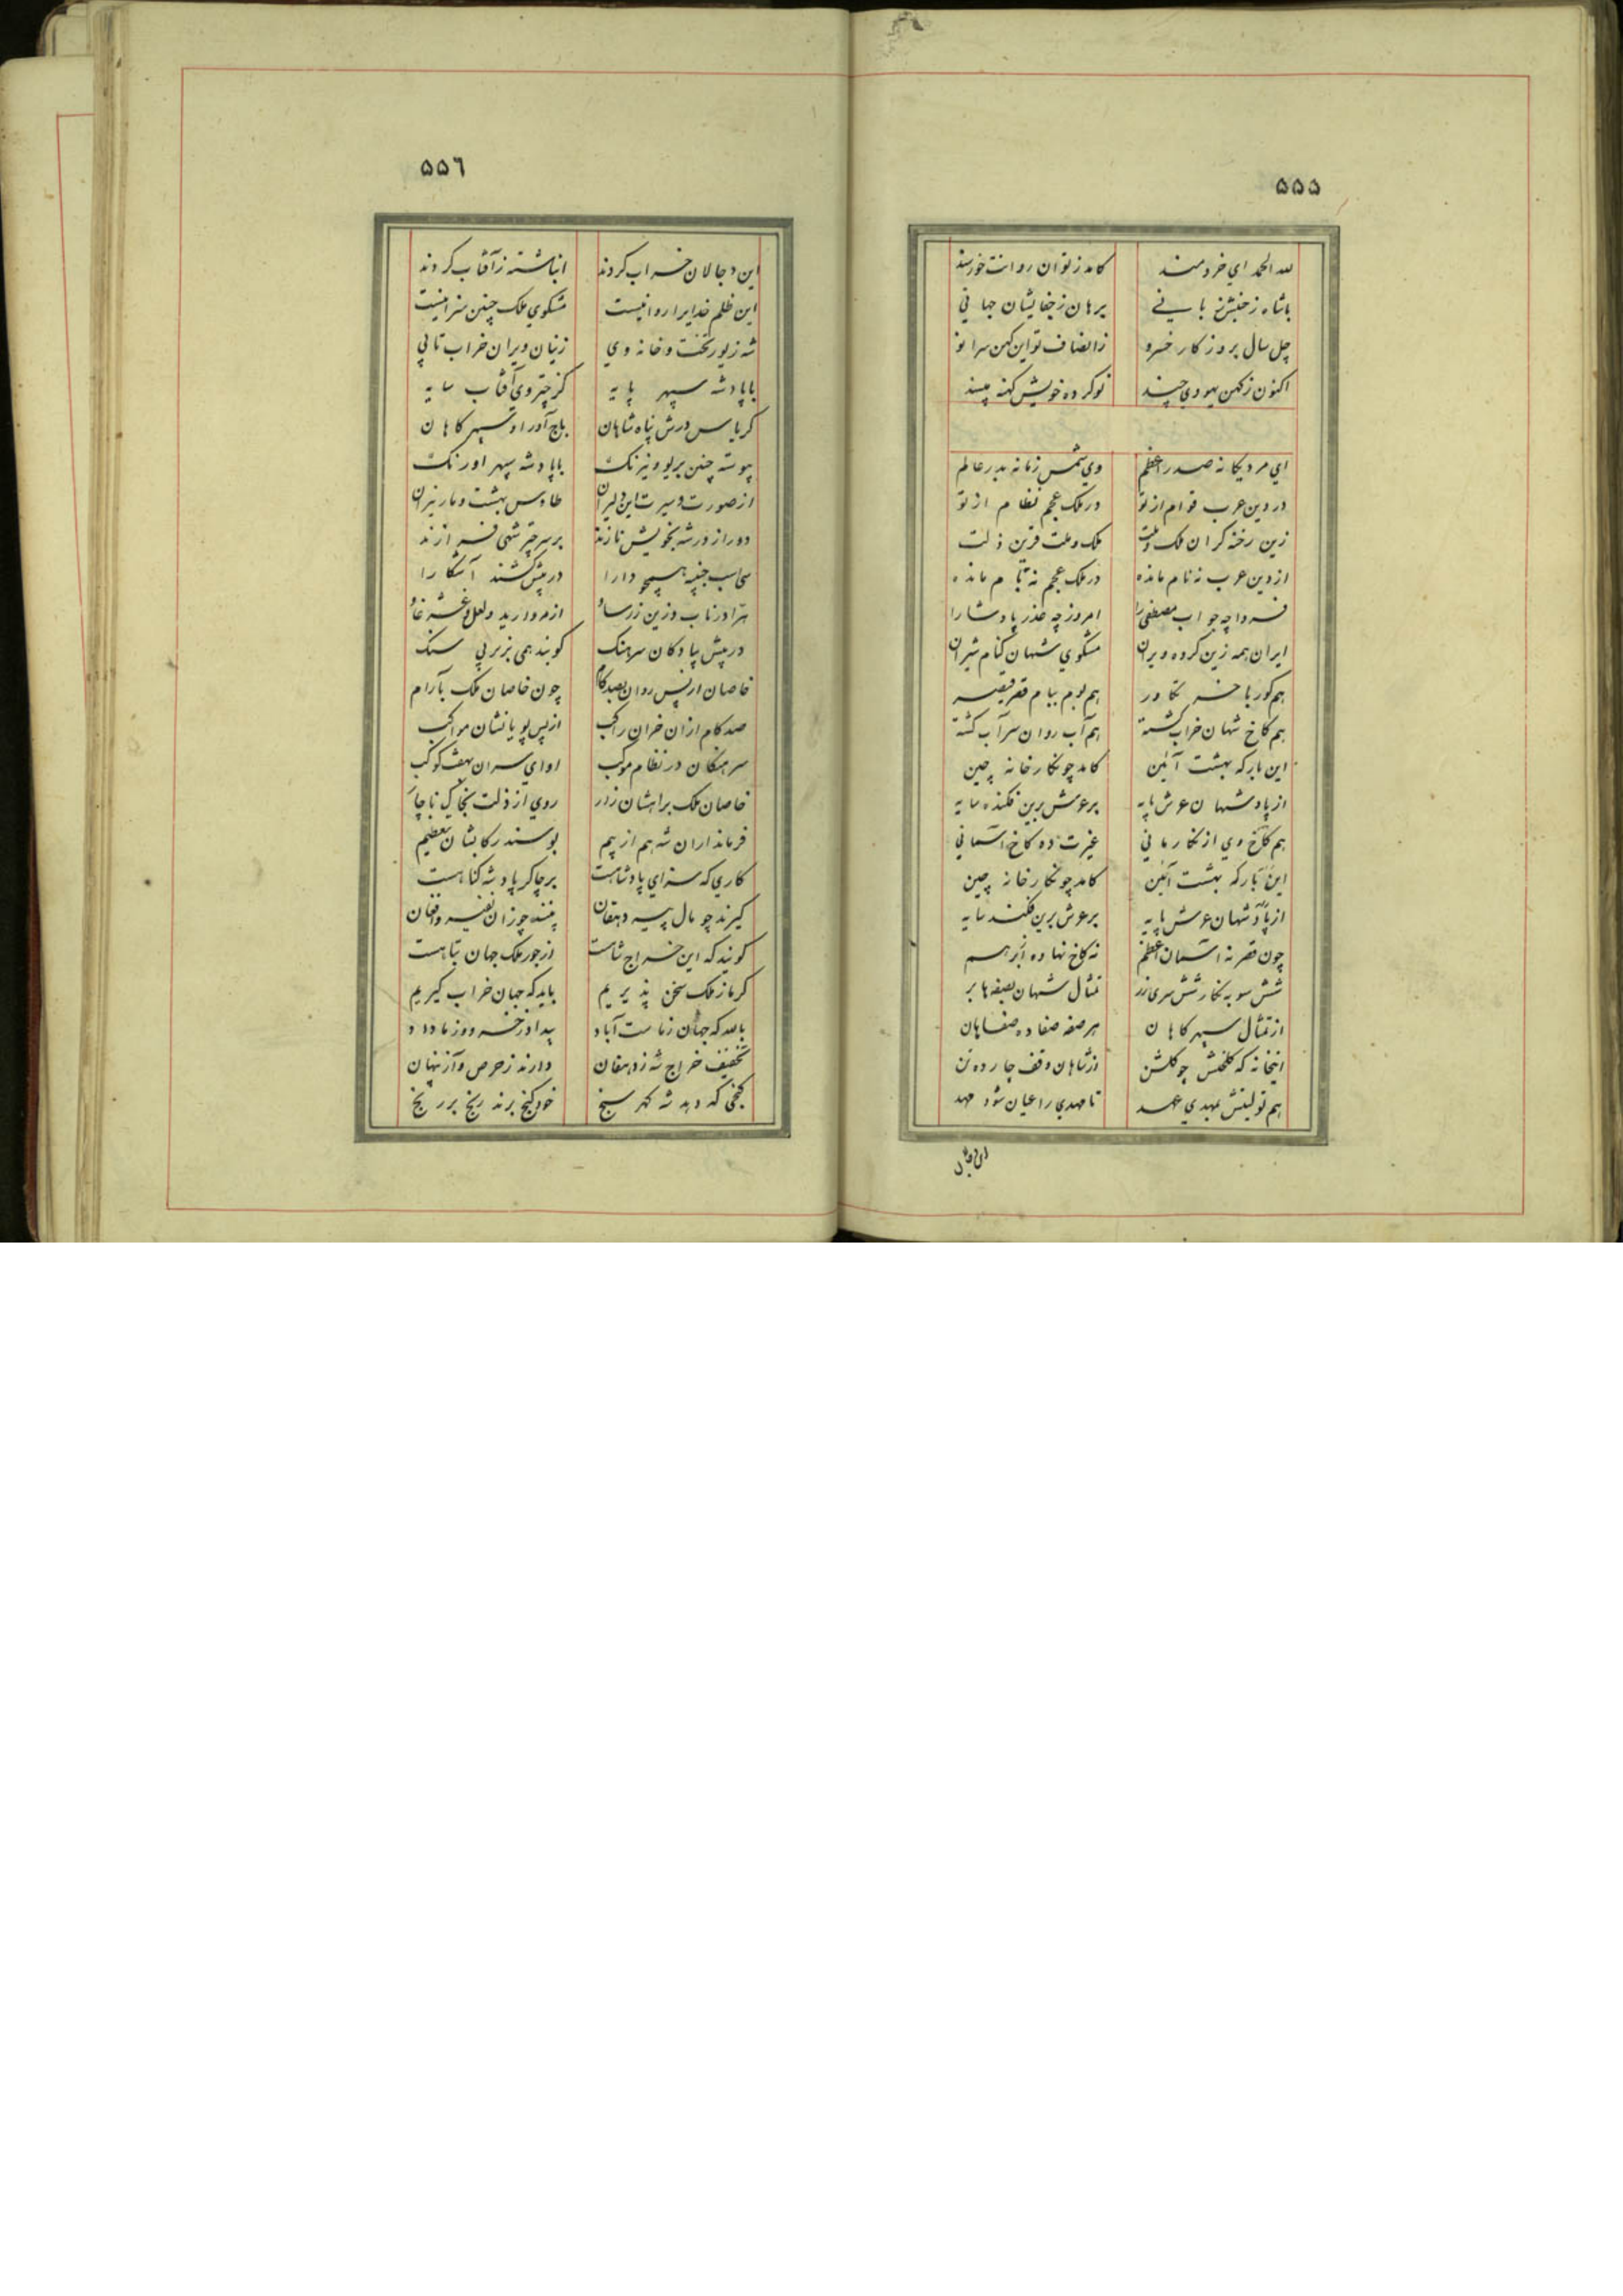 ۵۵۵
لله الحمد ای خردمند کامد ز تو آن روانت خورسند
باشاه ز جنبش نیابی برهان ز جفایشان جهانی
چل سال بروزکار خسرو ز انصاف تو این کهن سرا نو
اکنون ز کهن یهودی چند نو کرده خویش کهنه مپسند
ای مرد یکانه صدر اعظم وی شمس زمانه بدر عالم
در دین عرب قوام از تو در ملک عجم نظام از تو
زین رخنه کران ملک و ملت ملک و ملت قرین ذلت
از دین عرب نه نام مانده در ملک عجم نه مانده
فردا چه جواب مصطفی را امروز چه عذر پادشا را
ایران همه زین کروه ویران مشکوی شهان کنام شیران
هم کور با تکاور هم بوم ببام قصر قیصر
هم کاخ شهان خراب کشته هم آب روان سراب کشته
این بارکه بهشت آئین کامد چو نکارخانه چین
از پادشهان عرش پایه بر عرش برین فکنده سایه
هم کاخ وی از نکار مانی غیرت ده کاخ آسمانی
این بارکه بهشت آئین کامد چو نکارخانه چین
از پادشهان عرش پایه بر عرش برین فکند سایه
چون قصر نه آسمان اعظم نه کاخ نهاده بر هم
شش سو به نکارشش سری تمثال شهان بصفه ها بر
از تمثال سپهر کاهان هر صفه صفا ده صفاهان
اینخانه که کلخنش چو کلشن از شاهان وقف چارده تن
هم تولیتش بمهدی عهد تا مهدی را عیان شود مهد
این دجالان
۵۵۶
این دجالان خراب کردند انباشته ز آفتاب کردند
این ظلم خدایرا روا نیست مشکوی ملک چنین سزا نیست
شه زیور تخت و خانه وی زنیان ویران خراب تا پی
با پادشه سپهر پایه کز چتر وی آفتاب سایه
کریاس درش پناه شاهان باج آور او سپهر کاهان
پیوسته چنین بریو و نیرنک با پادشه سپهر اورنک
از صورت و سیرت این دلیران طاوس بهشت و مار نیران
دور از در شه بخویش نازند بر سر چتر شهی فرازند
اسب جنیبه همچو دارا در پیش کشند آشکارا
هرا در ناب و زین زر ساو از مروارید و لعل و غشه غاو
در پیش پیادکان سرهنک کوبند همی بزیر پی سنک
خاصان از پس روان بصد کام چون خاصان ملک بآرام
صد کام از آن خران راکب از پس پویانشان مواکب
سرهنکان در نظام موکب آوای سران بهفت کوکب
خاصان ملک براهشان زار روی از ذلت بخاک ناچار
فرمانداران شه هم از بیم بوسند رکابشان بتعظیم
کاری که سزای پادشاست بر چاکر پادشه کناهست
کیرند چو مال پیر دهقان بینند چو زان نفیر و افغان
کویند که این خراج شاهست از جور ملک جهان تباهست
کرما ز ملک سخن پذیریم باید که جهان خراب کیریم
بالله که جهان ز ماست آباد بیداد ز خسرو و ز ما داد
تخفیف خراج شه ز دهقان دارند ز حرص و آز پنهان
کنجی که دهد شه کهر سنج خود کنج برند رنج بر رنج